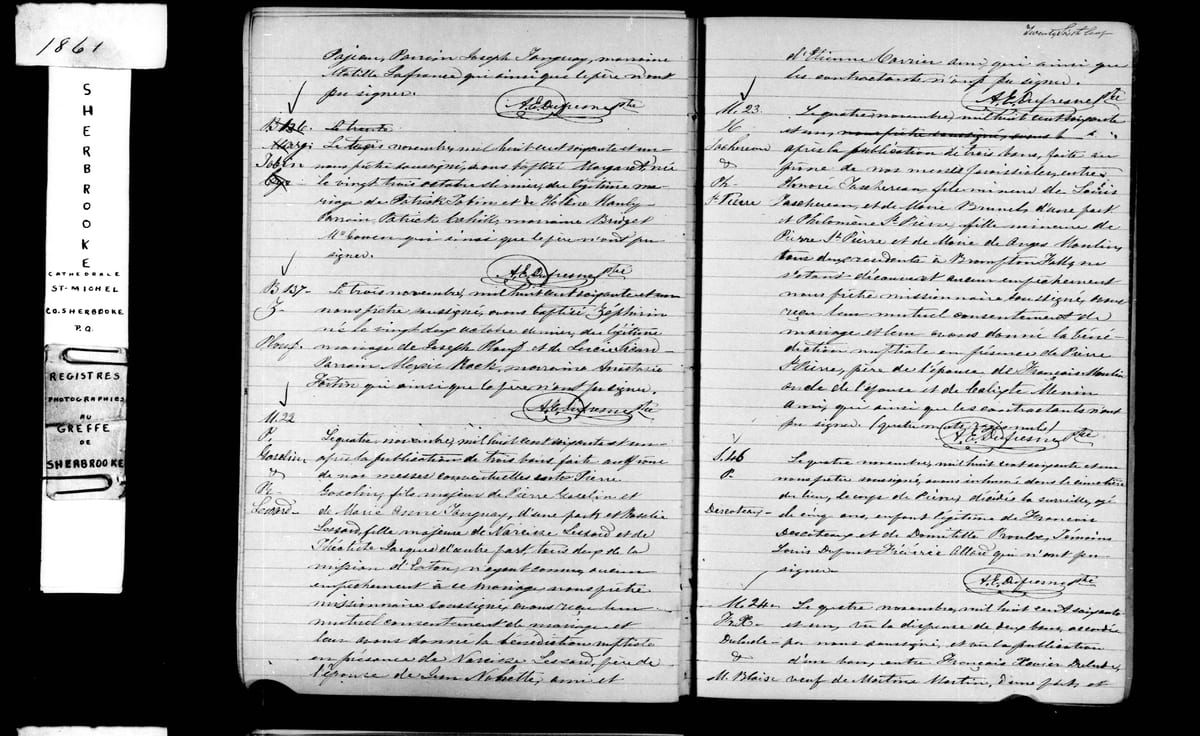 1861
SHERBROOKE
CATHEDRALE
ST-MICHEL
CO. SHERBROOKE
P.Q.
REGISTRES
PHOTOGRAPHIES
AU
GREFFE
DE
SHERBROOKE
Parrain Joseph Tanguay, marraine
Matilde Lafrance qui ainsi que le père n'ont
pu signer.
A.E. Dufresne Ptre
B 136. Le trente
Le trois novembre, mil huit cent soixante et un
Tobin nous prêtre soussigné, avons baptisé Margaret, née
le vingt trois octobre dernier, du légitime ma-
riage de Patrick Tobin et de Hélène Hanly
Parrain, Patrick Cahill, marraine Bridget
McGowen qui ainsi que le père n'ont pu
signer.
A.E. Dufresne Ptre
B 137- Le trois novembre, mil huit cent soixante et un
Z- nous prêtre soussigné, avons baptisé Zéphirin
né le vingt deux octobre dernier, du légitime
Plouf. mariage de Joseph Plouf et de
Parrain Rock, marraine Anastasie
Fortin qui ainsi que le père n'ont pu signer.
A.E. Dufresne Ptre
M. 22
P. Le quatre novembre, mil huit cent soixante et un
Gosselin après la publication de trois bans faite au prône
& de nos messes Pierre
R. Gosselin, fils majeur de Pierre Gosselin et
Lessard- de Marie Anne Tanguay, d'une part et Rosalie
Lessard, fille majeure de Narcisse Lessard et de
Jacques d'autre part tous deux de la
mission d'Eaton, n'ayant connu aucun
empêchement à ce mariage, nous prêtre
missionnaire soussigné, avons reçu leur
mutuel consentement de mariage et
leur avons donné la bénédiction nuptiale
en présence de Narcisse Lessard, père de
l'épouse de Jean ami et
Twenty Sixth leaf
d'Etienne Carrier ami qui ainsi que
les contractants n'ont pu signer.
A.E. Dufresne Ptre
M. 23 Le quatre novembre, mil huit cent soixante
H. et un, nous prêtre soussigné, avons
Taschereau après la publication de trois bans, faite au
& prône de nos messes paroissiales, entre
Ph. Honoré Taschereau, fils mineur de Louis
St Pierre Taschereau, et de Marie Brunel, d'une part
et Philomène St Pierre, fille mineure de
Pierre St Pierre et de Marie des Anges Moulin,
tous deux résidents à Brompton Falls, ne
s'étant découvert aucun empêchement
nous prêtre missionnaire soussigné, avons
reçu leur mutuel consentement de
mariage et leur avons donné la béné-
diction nuptiale en présence de Pierre
St Pierre, père de l'épouse de François Moulin
oncle de l'épouse et de Calixte Menin
ami, qui ainsi que les contractants n'ont
pu signer. (quatre mots nuls)
A.E. Dufresne Ptre
S. 46 Le quatre novembre, mil huit cent soixante et un
P. nous prêtre soussigné, avons inhumé dans le cimetière
du lieu, le corps de Pierre, décédé la surveille, agé
Descoteaux- de cinq ans, enfant légitime de Francois
Descoteaux et de Domitille Proulx, Témoins
Louis Dupont Fréderic Allard qui n'ont pu
signer.
A.E. Dufresne Ptre
M. 24. Le quatre novembre, mil huit cent soixante
Fr. X- et un, vu la dispense de deux bans, accordée
par nous soussigné, et vu la publication
& d'un ban, entre François Xavier
M. Blaise veuf de Martine Martin, d'une part, et